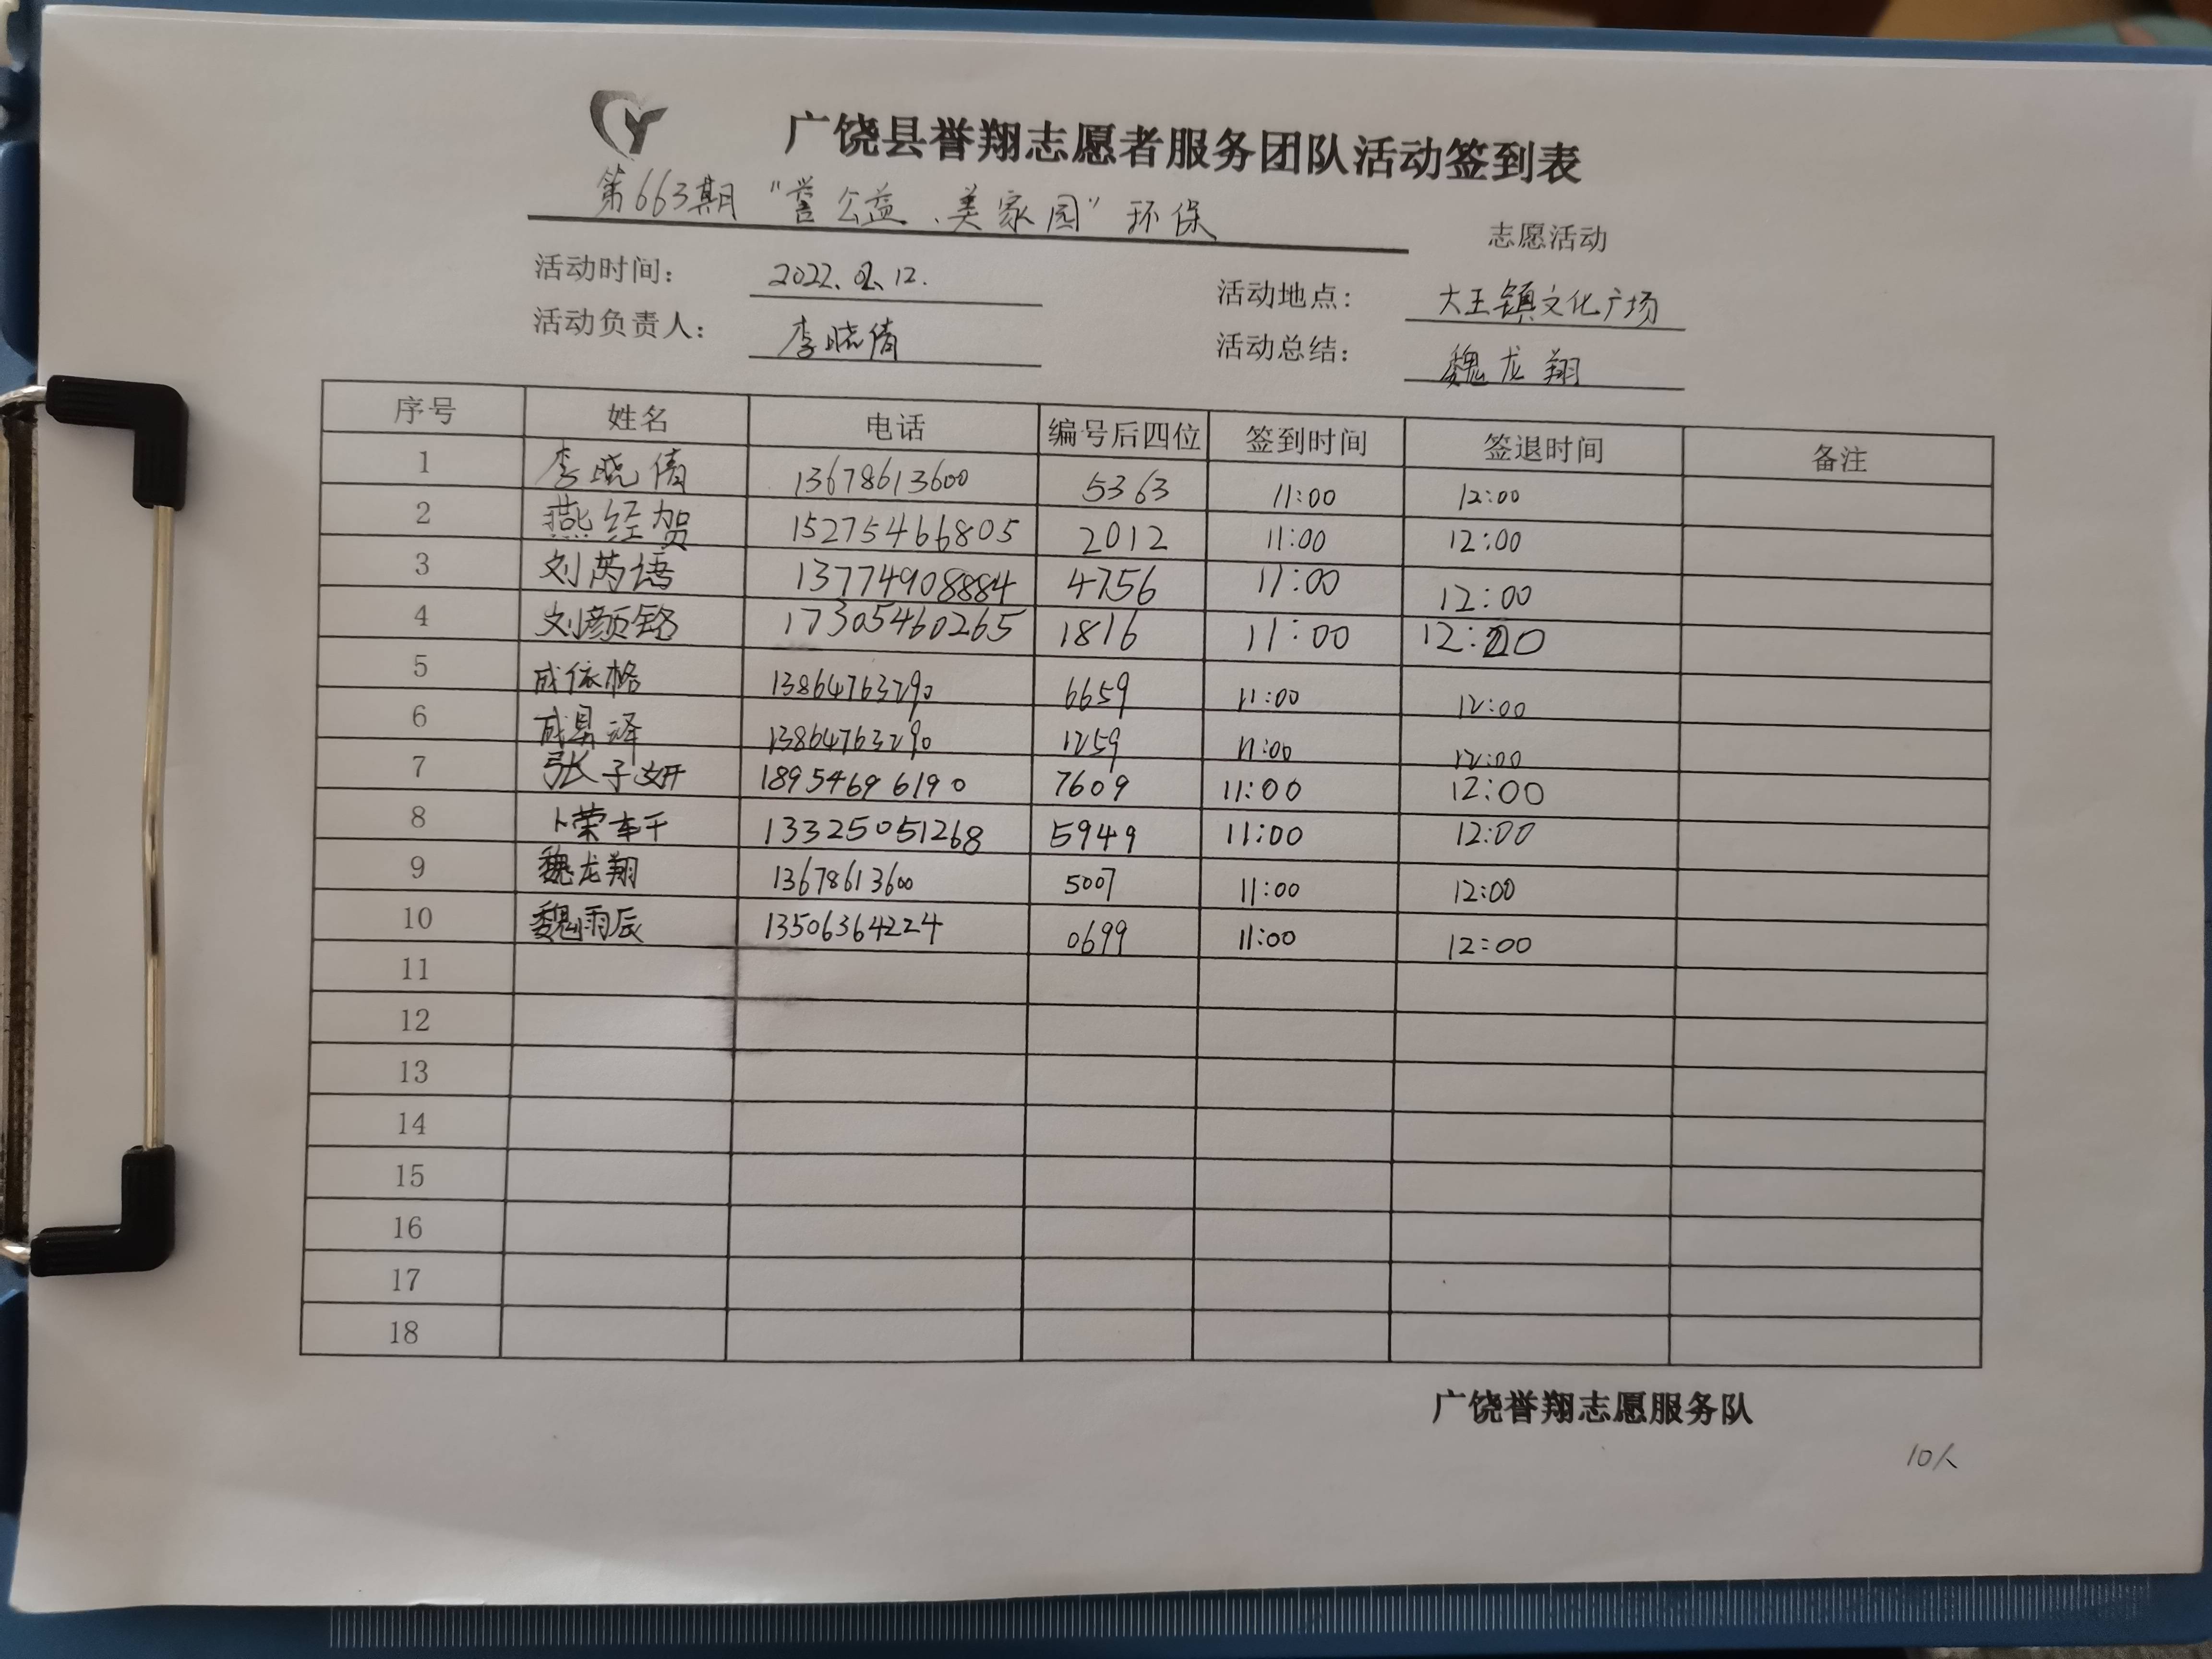 广饶县誉翔志愿者服务团队活动签到表
第663期“誉公益、美家园”环保 志愿活动
活动时间： 2022.02.12. 活动地点： 大王镇文化广场
活动负责人： 李晓倩 活动总结： 魏龙翔
序号 姓名 电话 编号后四位 签到时间 签退时间 备注
1 李晓倩 13678613600 5363 11:00 12:00
2 燕经贺 15275466805 2012 11:00 12:00
3 刘芮语 13774908884 4756 11:00 12:00
4 刘颜铭 17305460265 1816 11:00 12:00
5 成依格 13864763290 6659 11:00 12:00
6 成昱泽 13864763290 1259 11:00 12:00
7 张子妍 18954696190 7609 11:00 12:00
8 卜荣 13325051268 5949 11:00 12:00
9 魏龙翔 13678613600 5007 11:00 12:00
10 魏雨辰 13506364224 0699 11:00 12:00
11
12
13
14
15
16
17
18
广饶誉翔志愿服务队
10人